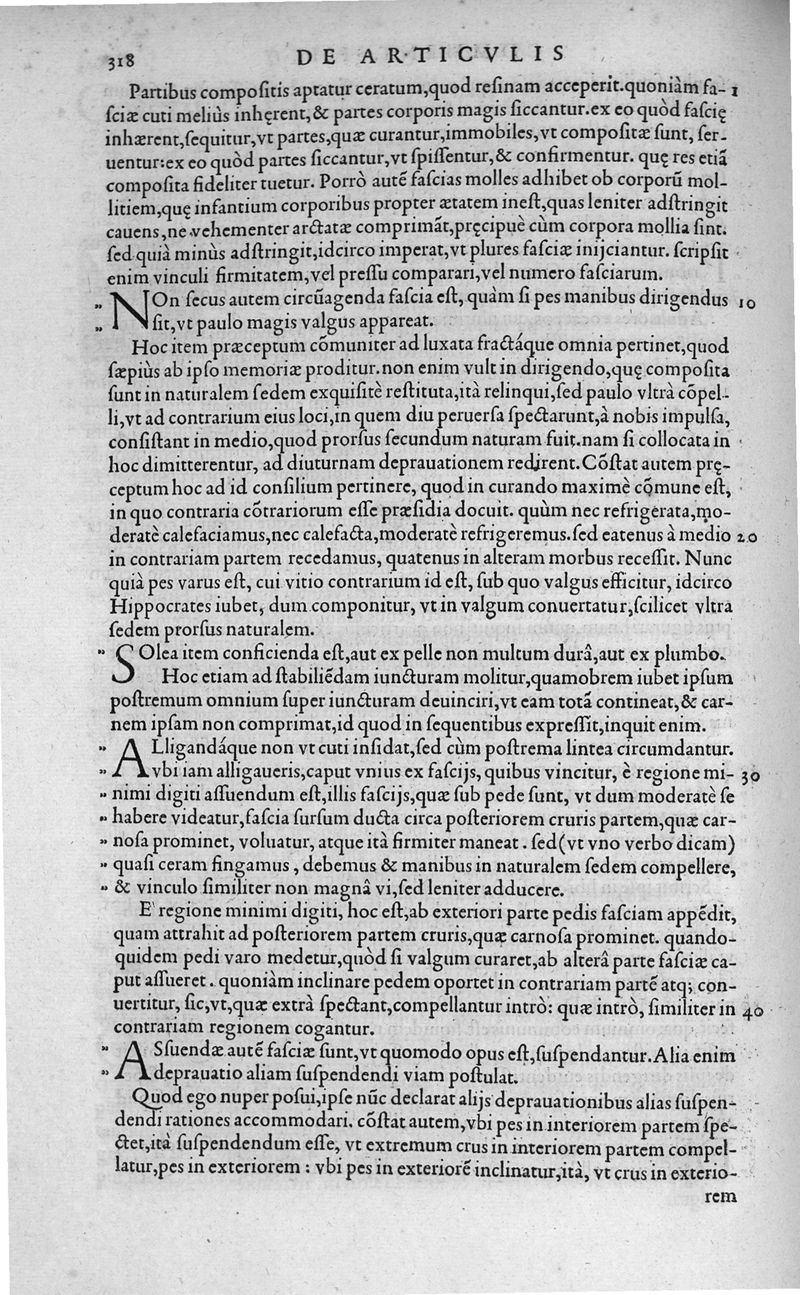 318 DE ARTICVLIS
Partibus compoſitis aptatur ceratum,quod reſinam acceperit.quoniàm fa- 1
ſciæ cuti meliùs inhęrent,& partes corporis magis ſiccantur.ex eo quòd faſcię
inhærent,ſequitur,vt partes,quæ curantur,immobiles,vt compoſitæ ſunt, ſer-
uentur:ex eo quòd partes ſiccantur,vt ſpiſſentur,& confirmentur. quę res etiã
compoſita fideliter tuetur. Porrò autẽ faſcias molles adhibet ob corporũ mol-
litiem,quę infantium corporibus propter ætatem ineſt,quas leniter adſtringit
cauens,ne vehementer arctatæ comprimãt,pręcipuè cùm corpora mollia ſint.
ſed quià minùs adſtringit,idcirco imperat,vt plures faſciæ inijciantur. ſcripſit
enim vinculi firmitatem,vel preſſu comparari,vel numero faſciarum.
„ NOn ſecus autem circũagenda faſcia eſt, quàm ſi pes manibus dirigendus 10
„ ſit,vt paulo magis valgus appareat.
Hoc item præceptum cõmuniter ad luxata fractáque omnia pertinet,quod
ſæpiùs ab ipſo memoriæ proditur.non enim vult in dirigendo,quę compoſita
ſunt in naturalem ſedem exquiſitè reſtituta,ità relinqui,ſed paulo vltrà cõpel-
li,vt ad contrarium eius loci,in quem diu peruerſa ſpectarunt,à nobis impulſa,
conſiſtant in medio,quod prorſus ſecundum naturam fuit.nam ſi collocata in
hoc dimitterentur, ad diuturnam deprauationem redirent.Cõſtat autem prę-
ceptum hoc ad id conſilium pertinere, quod in curando maximè cõmune eſt,
in quo contraria cõtrariorum eſſe præſidia docuit. quùm nec refrigerata,mo-
deratè calefaciamus,nec calefacta,moderatè refrigeremus.ſed eatenus à medio 20
in contrariam partem recedamus, quatenus in alteram morbus receſſit. Nunc
quià pes varus eſt, cui vitio contrarium id eſt, ſub quo valgus efficitur, idcirco
Hippocrates iubet, dum componitur, vt in valgum conuertatur,ſcilicet vltra
ſedem prorſus naturalem.
„ SOlea item conficienda eſt,aut ex pelle non multum durâ,aut ex plumbo.
Hoc etiam ad ſtabiliẽdam iuncturam molitur,quamobrem iubet ipſum
poſtremum omnium ſuper iuncturam deuinciri,vt eam totã contineat,& car-
nem ipſam non comprimat,id quod in ſequentibus expreſſit,inquit enim.
„ ALligandáque non vt cuti inſidat,ſed cùm poſtrema lintea circumdantur.
„ vbi iam alligaueris,caput vnius ex faſcijs, quibus vincitur, è regione mi- 30
„ nimi digiti aſſuendum eſt,illis faſcijs,quæ ſub pede ſunt, vt dum moderatè ſe
„ habere videatur,faſcia ſurſum ducta circa poſteriorem cruris partem,quæ car-
„ noſa prominet, voluatur, atque ità firmiter maneat. ſed(vt vno verbo dicam)
„ quaſi ceram fingamus, debemus & manibus in naturalem ſedem compellere,
„ & vinculo ſimiliter non magnâ vi,ſed leniter adducere.
E' regione minimi digiti, hoc eſt,ab exteriori parte pedis faſciam appẽdit,
quam attrahit ad poſteriorem partem cruris,quæ carnoſa prominet. quando-
quidem pedi varo medetur,quòd ſi valgum curaret,ab alterâ parte faſciæ ca-
put aſſueret. quoniàm inclinare pedem oportet in contrariam partẽ atq; con-
uertitur, ſic,vt,quæ extrà ſpectant,compellantur intrò: quæ intrò, ſimiliter in 40
contrariam regionem cogantur.
„ ASſuendæ autẽ faſciæ ſunt,vt quomodo opus eſt,ſuſpendantur.Alia enim
„ deprauatio aliam ſuſpendendi viam poſtulat.
Quod ego nuper poſui,ipſe nũc declarat alijs deprauationibus alias ſuſpen-
dendi rationes accommodari. cõſtat autem,vbi pes in interiorem partem ſpe-
ctet,ità ſuſpendendum eſſe, vt extremum crus in interiorem partem compel-
latur,pes in exteriorem : vbi pes in exteriorẽ inclinatur,ità, vt crus in exterio-
rem